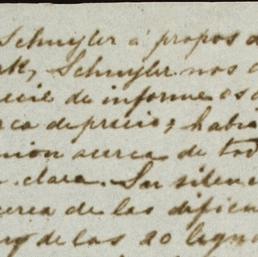 Schuyler á propos d
rk, Schuyler nos d
ecie de informe as
rca de precio; habi
nion acerca de tod
clara. Su silenc
cerca de las dificu
de las 20 legu